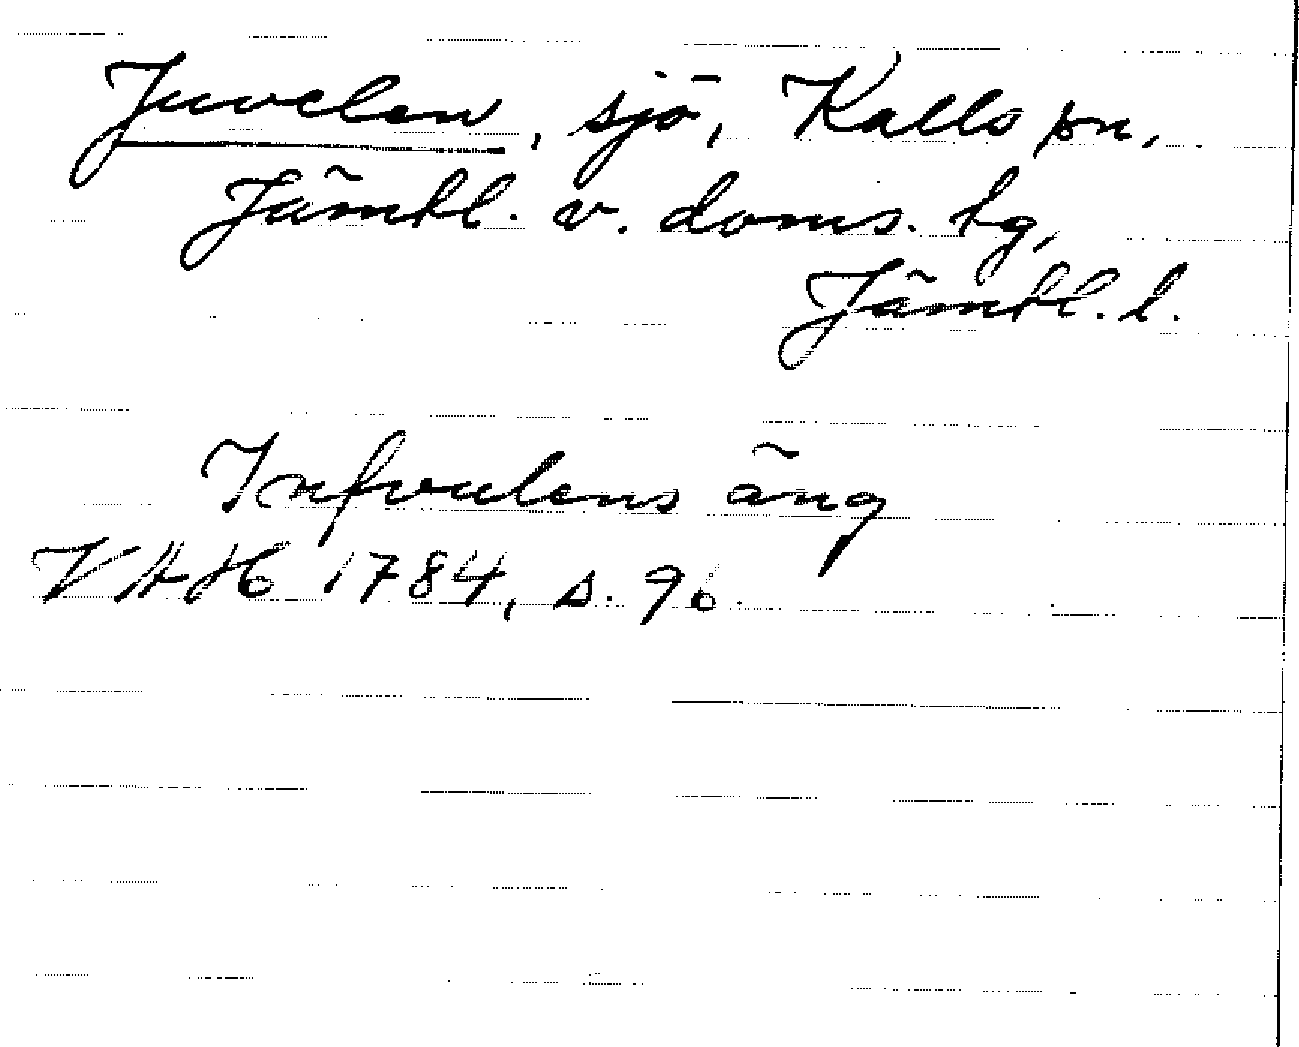 Juvelen, sjö, Kalls sn,
Jämtl. v. doms. tg,
Jämtl. l.
äng
VHAH 1784, s. 96.